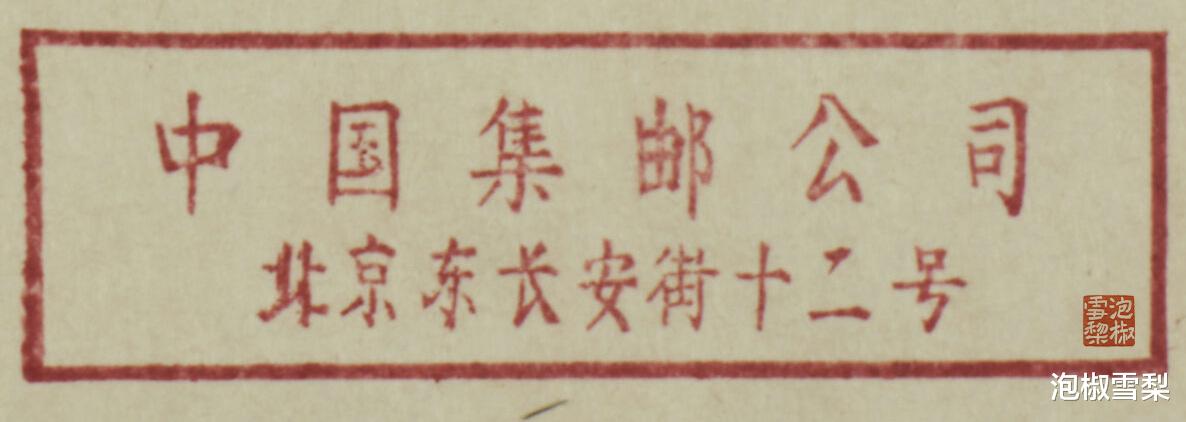 中国集邮公司
北京东长安街十二号
泡椒雪梨
泡椒雪梨